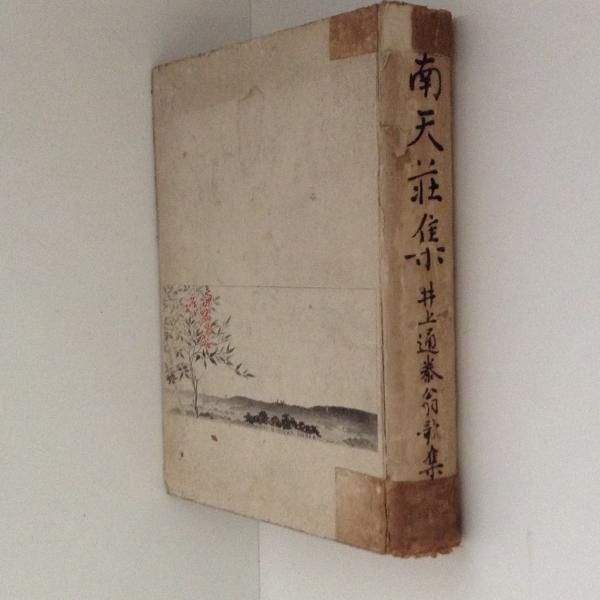 南天荘集
井上通泰翁歌集